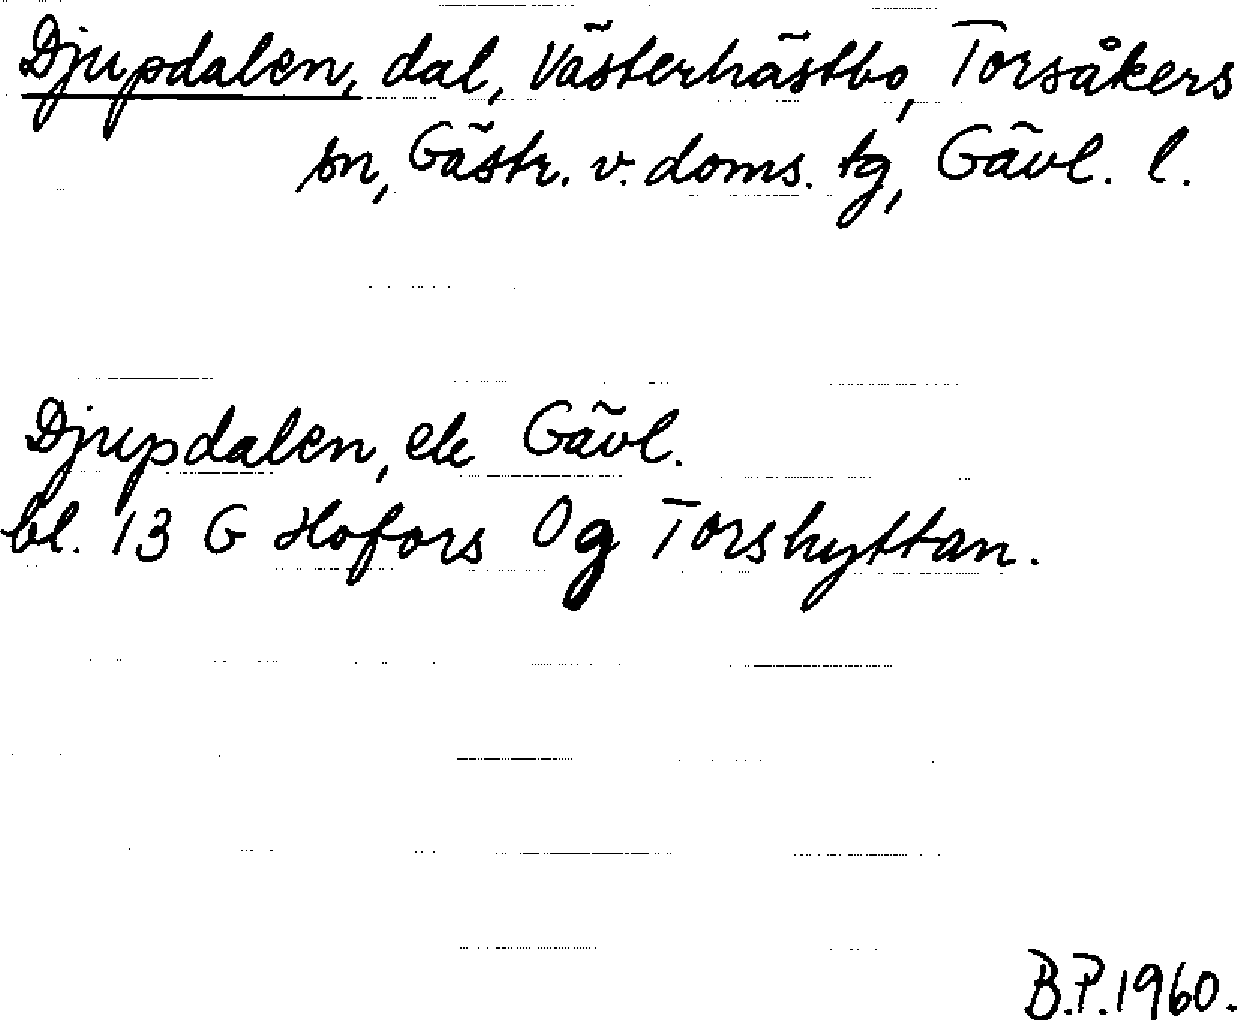 Djupdalen, dal, Västerhästbo, Torsåkers
sn, Gästr. v. doms. tg, Gävl. l.
Djupdalen, ek Gävl.
bl. 13 G Hofors 0g Torshyttan.
B.P. 1960.